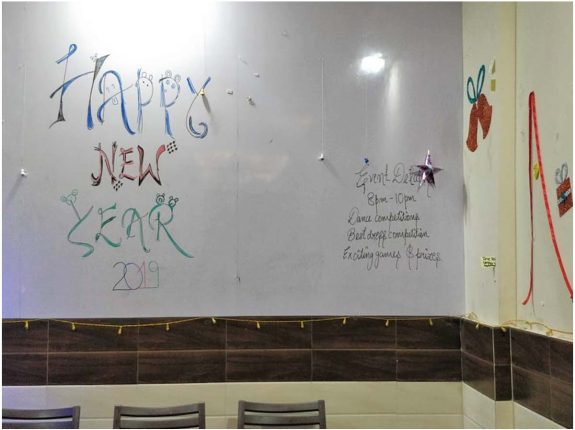 HAPPY
NEW
YEAR
2019
Event Detail
8pm-10pm
Dance competitions
Best dress competition
Exciting games & prizes